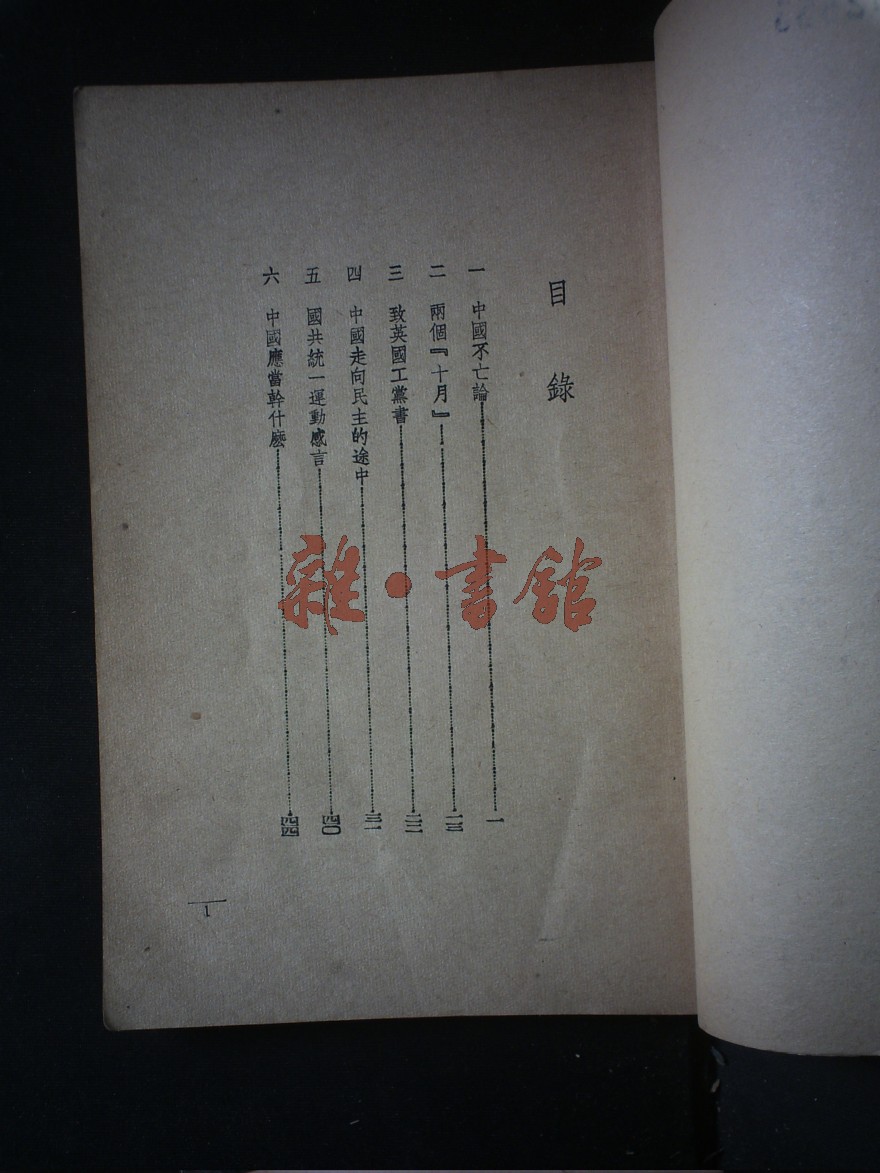 目錄
一 中國不亡論 一
二 兩個『十月』 一三
三 致英國工黨書 二二
四 中國走向民主的途中 三一
五 國共統一運動感言 四〇
六 中國應當幹什麽 四四
1
雜·書舘